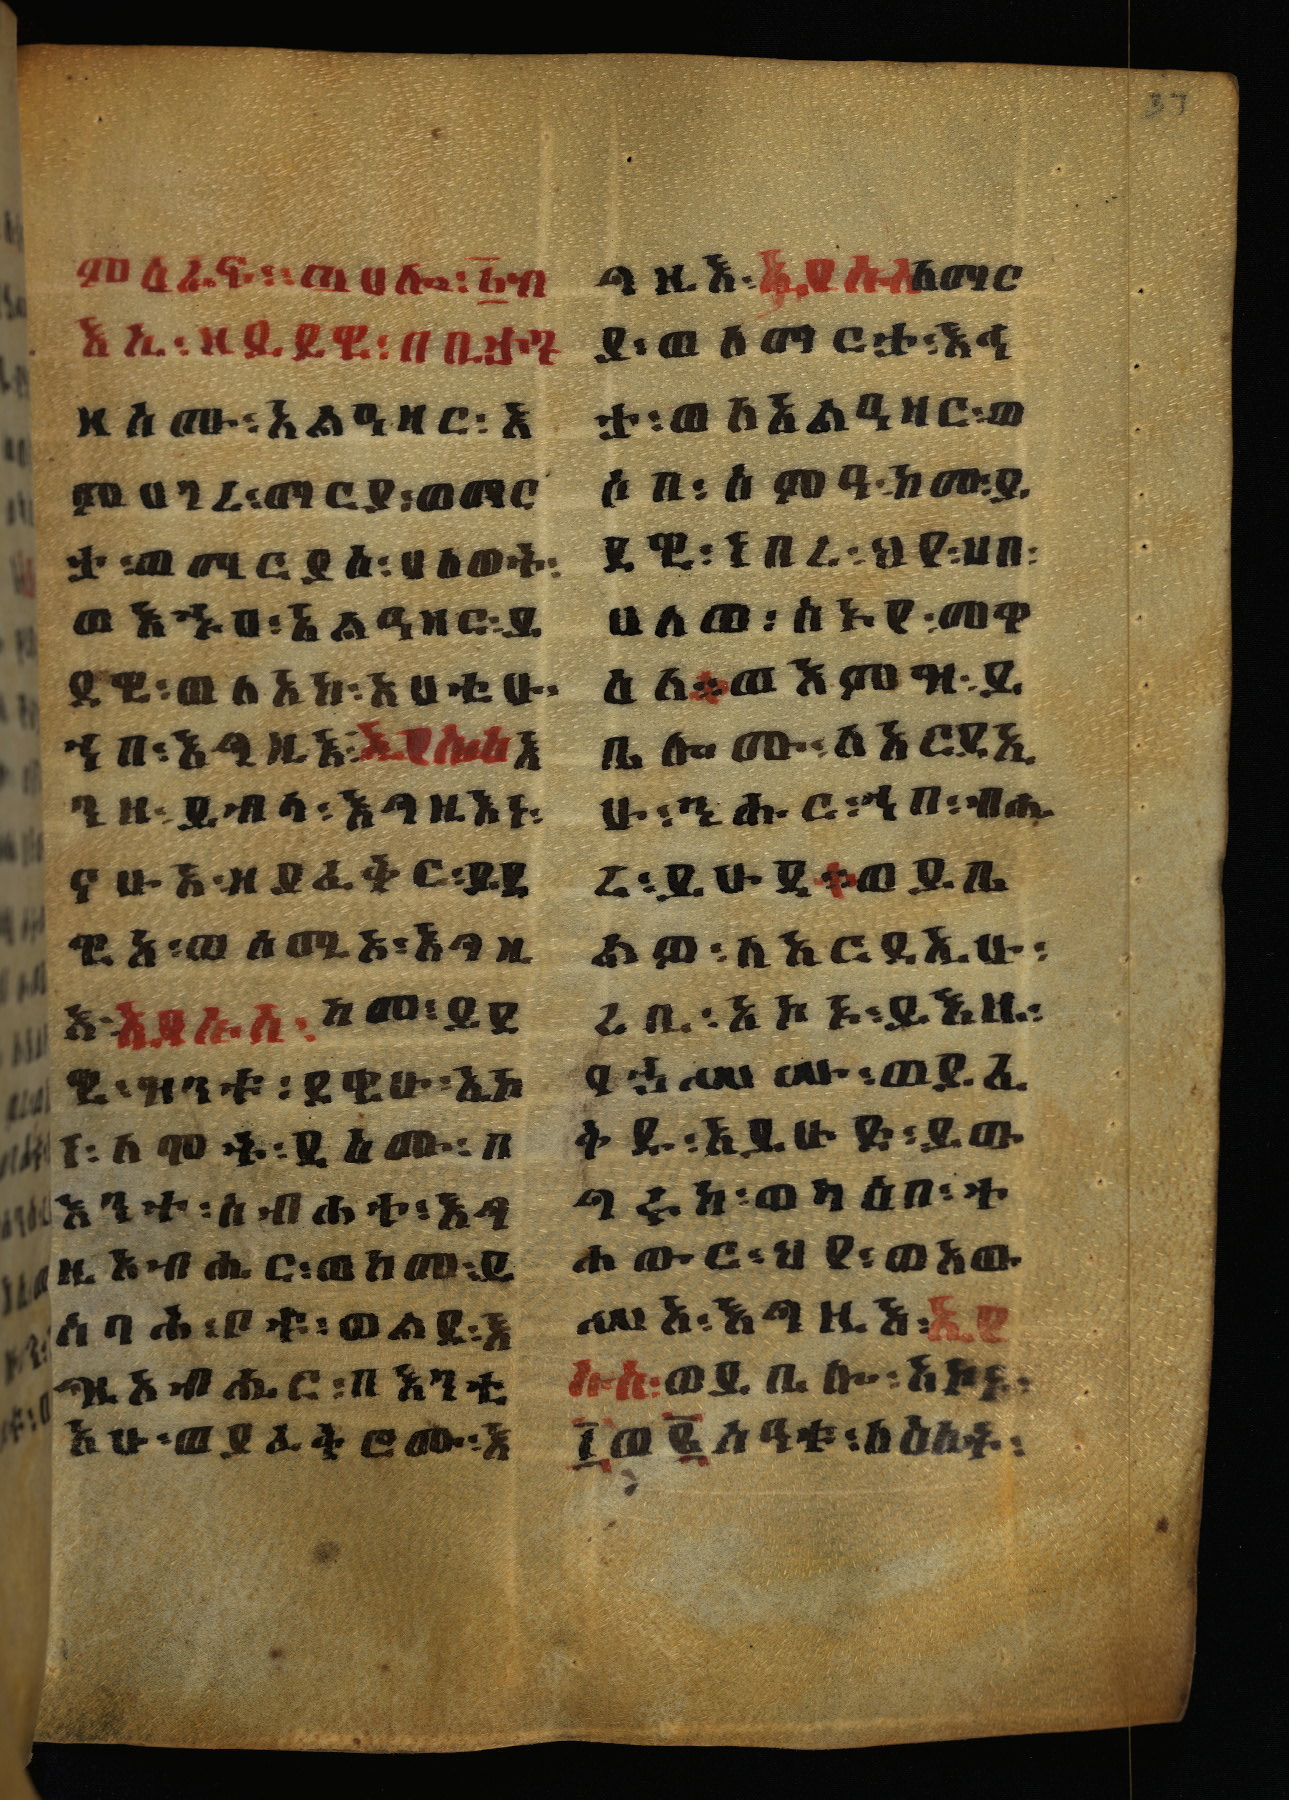 37
ምዕራፍ፡፡ወሀሎ፡፩ብ
እሲ፡ዘይደዊ፡በቢታን
ዘስሙ፡አልዓዛር፡እ
ምሀገረ፡ማርያ፡ወማር
ታ፡ወማርያስ፡ሀለወት፡
ወእኅወ፡አልዓዛር፡ይ
ደዊ፡ወለአከ፡አሀቲሁ፡
ኀበ፡እግዚእ፡ኢየሱስእ
ንዘ፡ይብላ፡እግዚእነ፡
ናሁ፡እ፡ዘያፈቅር፡ይደ
ዊ፡እ፡ወሰሚኦ፡እግዚ
እ፡ኢየሱስ፡ከመ፡ይደ
ዊ፡ዝንቱ፡ደዊሁ፡ኢኮ
ነ፡ለሞት፡ዳእሙ፡በ
እንተ፡ስብሐተ፡እግ
ዚአብሔር፡ወከመ፡ይ
ሰባሕ፡ቦቱ፡ወልደ፡እ
ግዚአብሔር፡በእንቲ
አሁ፡ወያፈቅሮሙ፡እ
ግዚእ፡ኢየሱስለማር
ያ፡ወለማርታ፡እኅ
ታ፡ወለአልዓዛር፡ወ
ሶበ፡ሰምዓ፡ከመ፡ይ
ደዊ፡ነበረ፡ህየ፡ኀበ፡
ሀለወ፡ሰኑየ፡መዋ
ዕለ፡ወእምዝ፡ይ
ቤሎሙ፡ለአርዳኢ
ሁ፡ንሑር፡ኀበ፡ብሔ
ረ፡ይሁዳ፡ወይቤ
ልዎ፡አርዳኢሁ፡
ረቢ፡አኮኑ፡ይእዜ፡
ዓታሠሡ፡ወይፈ
ቅዱ፡አይሁድ፡ይው
ግሩከ፡ወካዕበ፡ተ
ሐውር፡ህየ፡ወአው
ሥአ፡እግዚእ፡ኢየ
ሱስ፡ወይቤሎ፡አኮኑ፡
፲ወ፪ሰዓቱ፡ለዕለት፡